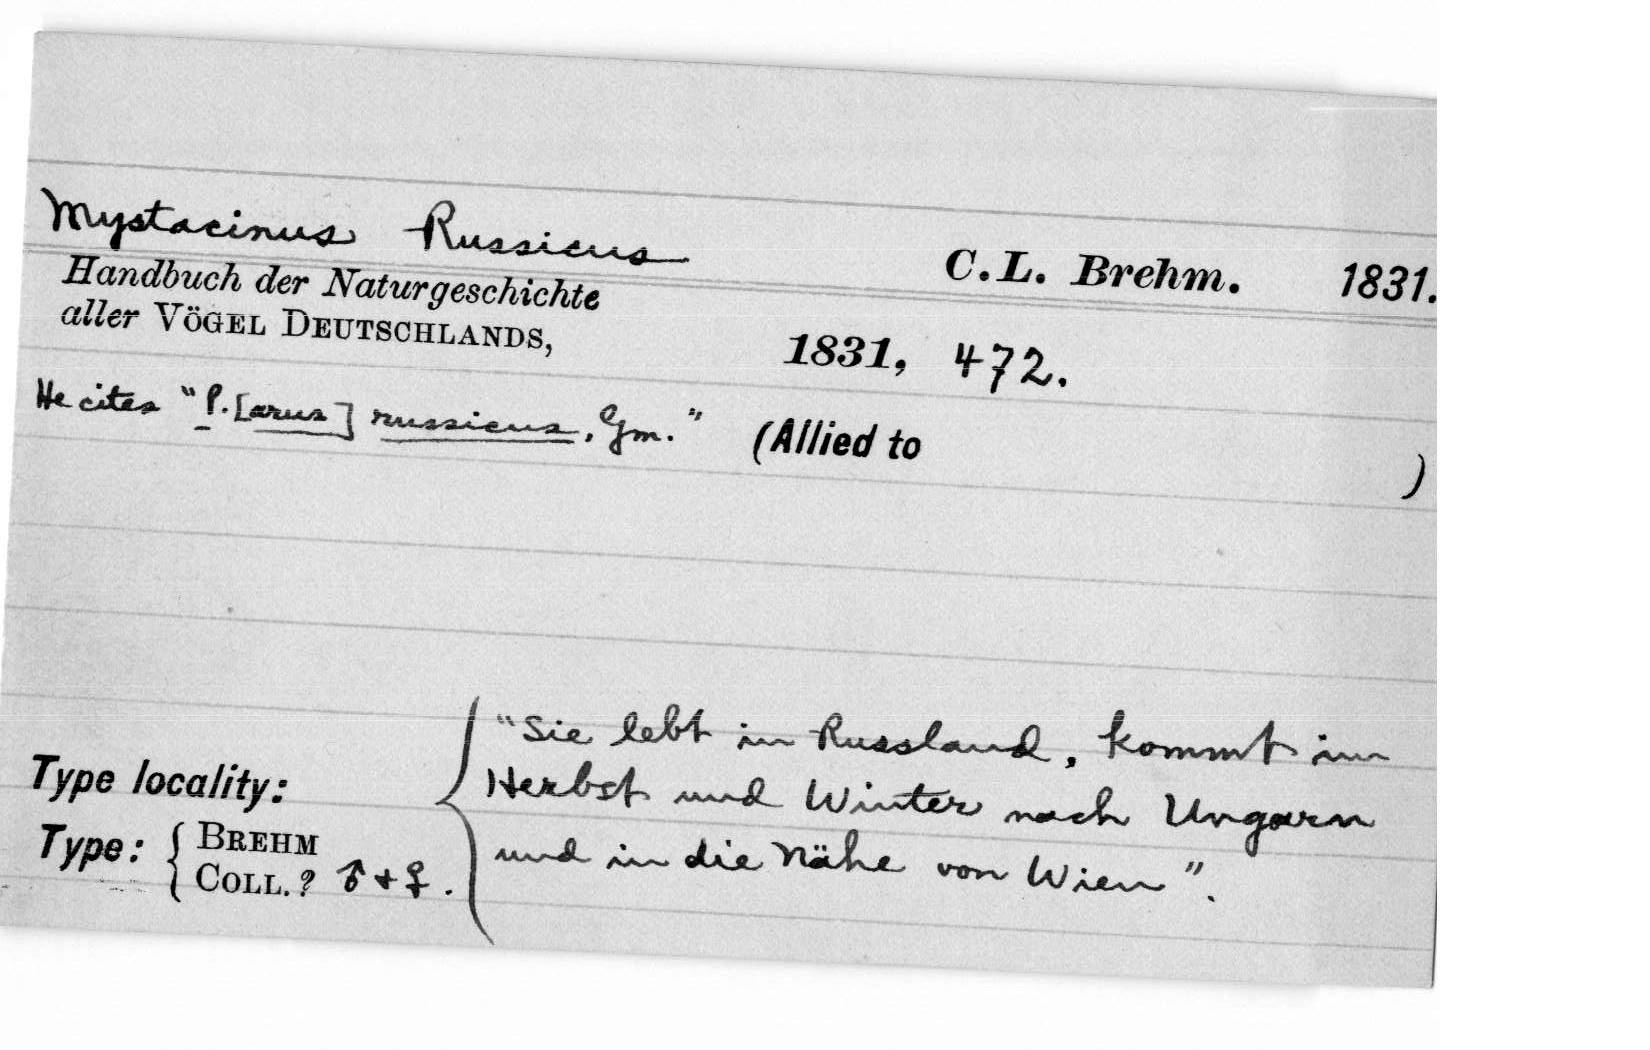 Mystacinus Russicus
C.L. Brehm. 1831.
Handbuch der Naturgeschichte
aller VÖGEL DEUTSCHLANDS,
1831, 472.
He cites "P.[arus] russicus, Gm." (Allied to )
"Sie lebt in Russland, kommt im
Type locality: Herbst und Winter nach Ungarn
Type: { BREHM COLL. ? ♂ + ♀. und in die Nähe von Wien".